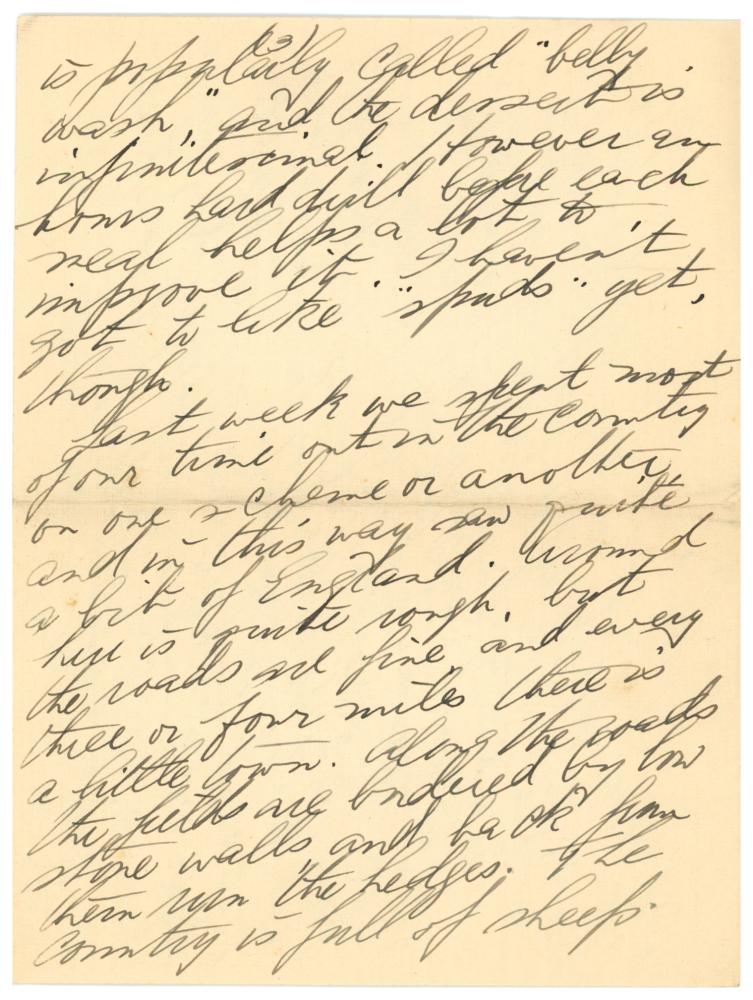 (3)
is popularly called "belly
wash," and the dessert is
infinitesimal. However an
hours hard drill before each
meal helps a lot to
improve it. I haven't
got to like "spuds" yet,
though.
Last week we spent most
of our time out in the country
on one scheme or another
and in this way saw quite
a bit of England. Around
here is quite rough, but
the roads are fine and every
three or four miles there is
a little town. Along the roads
the fields are bordered by low
stone walls and back from
them run the hedges. The
country is full of sheep.